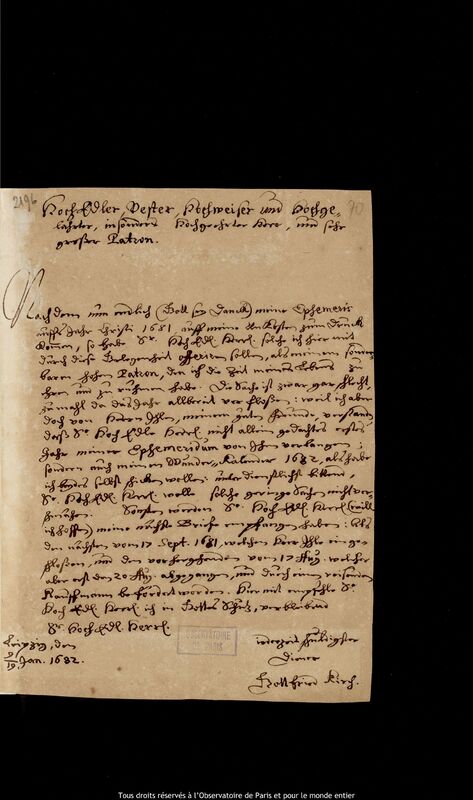 2196
70
HochEdler, Vester, Hochweiser und Hochge-
lährter, insonders Hochgeehrter Herr, und sehr
großer Patron.
Nach dem nun endlich (Gott sey Danck) meine Ephemeris
auffs Jahr Christi 1681 auff meine Unkosten zum Druck
kommen, so habe Sr. HochEdl. Herrl. solche ich hiermit
durch diese Gelegenheit offeriren sollen, als meinem sonder-
baren hohen Patron, den ich die Zeit meines Lebens zu
ehren und zu rühmen habe. Die Sache ist zwar gar schlecht,
zumahl da das Jahr allbereit verfloßen: weil ich aber
doch von Herrn Ihlen, meinem guten Freunde, verstanden
daß Sr. HochEdle Herrl. nicht allein gedachtes erstes
Jahr meiner Ephemeridum von Ihm verlangen;
sondern auch meinen Wunder-Kalender 1682, als habe
ich beydes selbst schicken wollen; unterdienstlichst bittend,
Sr. HochEdl. Herrl. wolle solche geringe Sachen nicht ver-
schmähen. Sonsten werden Sr. HochEdl. Herrl. (will
ich hoffen) meine nächste Brieffe empfangen haben: Als
den nächsten vom 17 Sept. 1681, welchen Herr Ihle ein ge-
schloßen, und den vorhergehenden vom 17 Aug. welcher
aber erst den 20 Aug. abgegangen, und durch einen reisenden
Kauffmann befördert worden. Hiermit empfehle Sr.
HochEdl. Herrl. ich in Gottes Schutz, verbleibend
Sr. HochEdl. Herrl.
Leipzig, den
9/19. Jan. 1682.
iederzeit schuldigster
Diener
Gottfried Kirch.
OBSERVATOIRE
DE PARIS
Tous droits réservés à l'Observatoire de Paris et pour le monde entier